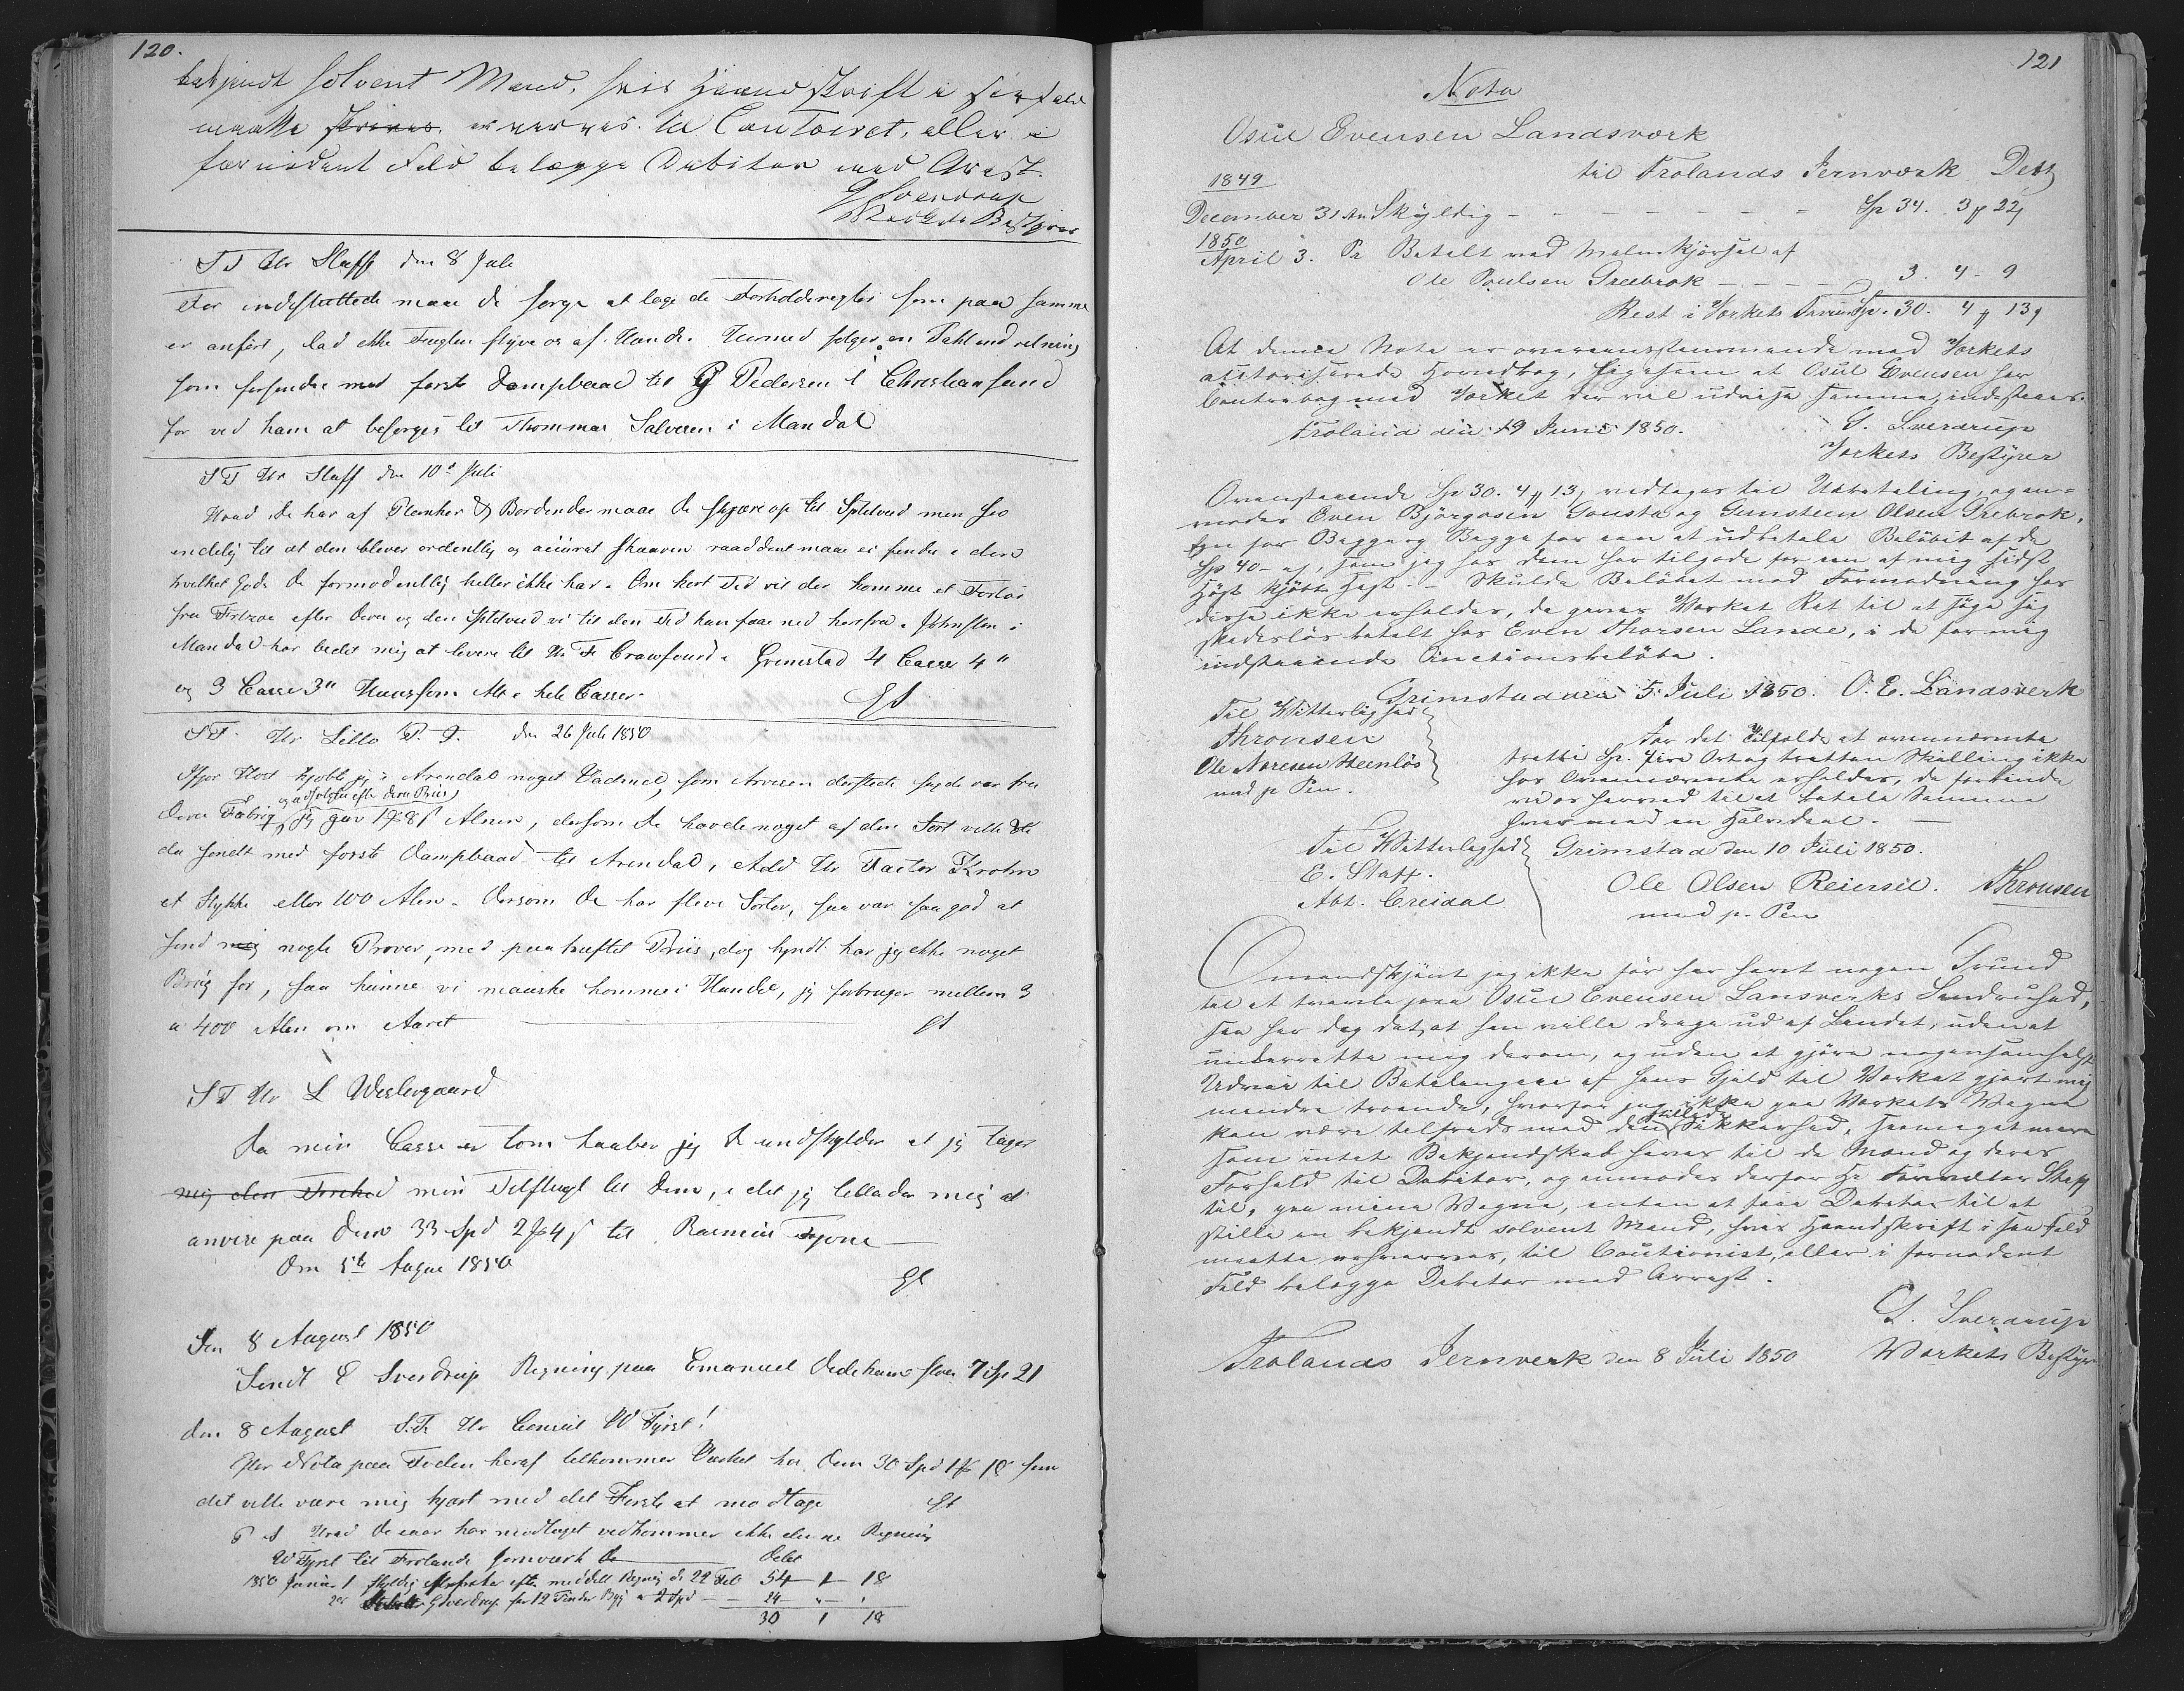 120.
bekjendt solvent Mand, hvis Haandskrift i
maatte erhverves til Cautionist, eller i
fornødent Fald belægge Debitor med Arrest.
G Sverdrup
Værkets Bestyrer
ST Hr Staff den 8 Juli
For indsluttede maa De sørge at tage de Forholdsregler som paa samme
er anført, lad ikke Fuglen flyve os af Hænde. Hermed følger en
som forsendes med første Dampbaad til P Pedersen i Christiansand
for ved ham at besørges til Thommas Salvesen i Mandal
ST Hr Staff den 10de Juli
Hvad De har af Planker & Bordender maae De skjære op til Splitved men see
endelig til at den bliver ordentlig og skaaren raaddent maa ei findes i den
hvilket Gods De formodentlig heller ikke har. Om kort Tid vil der komme et Fartøi
fra efter Deres og den Splitved vi til den Tid kan faae ned herfra. Johnsen i
Mandal har bedet mig at levere til Hr Fr Crawfourd Grimstad 4 Casse 4"
og 3 Casse 3" som Alt i hele Casser.
GS
ST. Hr Lillo P. T. den 26 Juli 1850
Ifjor Høst kjøbte jeg i Arendal noget Vadmel, som derstede sagde var fra
og udsolgtes efter Deres Priis
Deres Fabrig, jeg gav 1 8 Alnen, dersom De havde noget af den Sort vilde De
da sendt med første Dampbaad til Arendal, Add Hr Factor Krohn
et Stykke eller 100 Alen. Dersom De har flere Sorter, saa vær saa god at
send mig nogle Prøver, med paahæftet Priis, dog tyndt har jeg ikke noget
Brug for, saa kunne vi maaske komme i Handel, jeg forbruger mellem 3
a 400 Alen om Aaret GS
ST Hr L Westergaard
Da min Casse er tom haaber jeg De undskylder at jeg tager
mig den Frihed min Tilflugt til Dem, i det jeg tillader mig at
anvise paa Dem 33 Spd 2 4 til Rasmus
Den 5te August 1850
GS
Den 8 August 1850
Sendt E Sverdrup Regning paa Emanuel 7 Sp 21
den 8 August S.T. Hr Consul W Fyrst!
Efter Nota paa Foden heraf tilkommer Værket hos Dem 30 Spd 1 18 som
det vilde være mig kjært med det Første at modtage GS
P S Hvad De iaar har modtaget vedkommer ikke denne Regning
W Fyrst til Frolands Jernværk Debet
1850 Januar 1 Skyldig efter meddelt Regning d. 22 Feb 54 1 18
G Sverdrup for 12 Tønder Byg a 2 Spd 24 " "
30 1 18
121
Nota
Osul Evensen Landsværk
til Frolands Jernværk Debet
1849
December 31 An Skyldig - - - Sp 34. 3 22
1850
April 3. Pr Betalt med Malmkjørsel af
Ole Poulsen Greebrok - - - 3. 4 - 9
Rest i Værkets Favour Sp. 30. 4 13
At denne Nota er overeensstemmende med Værkets
auctoriserede Hovedbog, ligesom at Osul Evensen har
Contrabog med Værket der vil udvise Samme, indestaaes.
Froland den 19 Juni 1850. G. Sverdrup
Værkets Bestyrer
Ovenstaaende Sp 30. 4 13 vedtages til Udbetaling, og an-
modes Even Bjørgosen Tousta og Gunsteen Olsen Grebrok,
Een for Begge og Begge for een at udbetale Beløbet af de
Sp 40 - , som jeg hos dem har tilgode for een af mig sidst
Høst kjøbt Hest. - Skulde Beløbet mod Formodning hos
disse ikke erholdes, da gives Værket Ret til at søge sig
skadesløs betalt hos Even Thorsen Lande, i de for mig
indstaaende Auctionsbeløbe.
Grimstad den 5 Juli 1850. O. E. Landsverk
Til Vitterlighed
Thronsen
Ole Noresen Steenløs
med p. Pen.
For det Tilfælde at ovennævnte
tretti Sp. fire Ort og tretten Skilling ikke
hos Ovennævnte erholdes, da forbinde
vi os herved til at betale Samme
hver med en Halvdeel. -
Til Vitterlighed Grimstad den 10 Juli 1850.
E. Staff. Ole Olsen Reiersil. Thronsen
Abt. Creidal med p. Pen
Omendskjønt jeg ikke før har havt nogen Grund
til at tvivle paa Osul Evensen Lansverks Sandruhed,
saa har dog det, at han vilde drage ud af Landet, uden at
underrette mig derom, og uden at gjøre nogensomhelst
Udvei til Betalingen af hans Gjæld til Værket gjort mig
mindre troende, hvorfor jeg ikke paa Værkets Vegne
kan være tilfreds med den stillede Sikkerhed, saameget mere
som intet Bekjendskab haves til de Mænd og deres
Forhold til Debitor, og anmodes derfor Hr Forvalter Staff
til, paa mine Vegne, enten at faae Debitor til at
stille en bekjendt solvent Mand, hvis Haandskrift i saa Fald
maatte erhverves, til Cautionist, eller i fornødent
Fald belægge Debitor med Arrest.
G. Sverdrup
Frolands Jernverk den 8 Juli 1850 Værkets Bestyrer